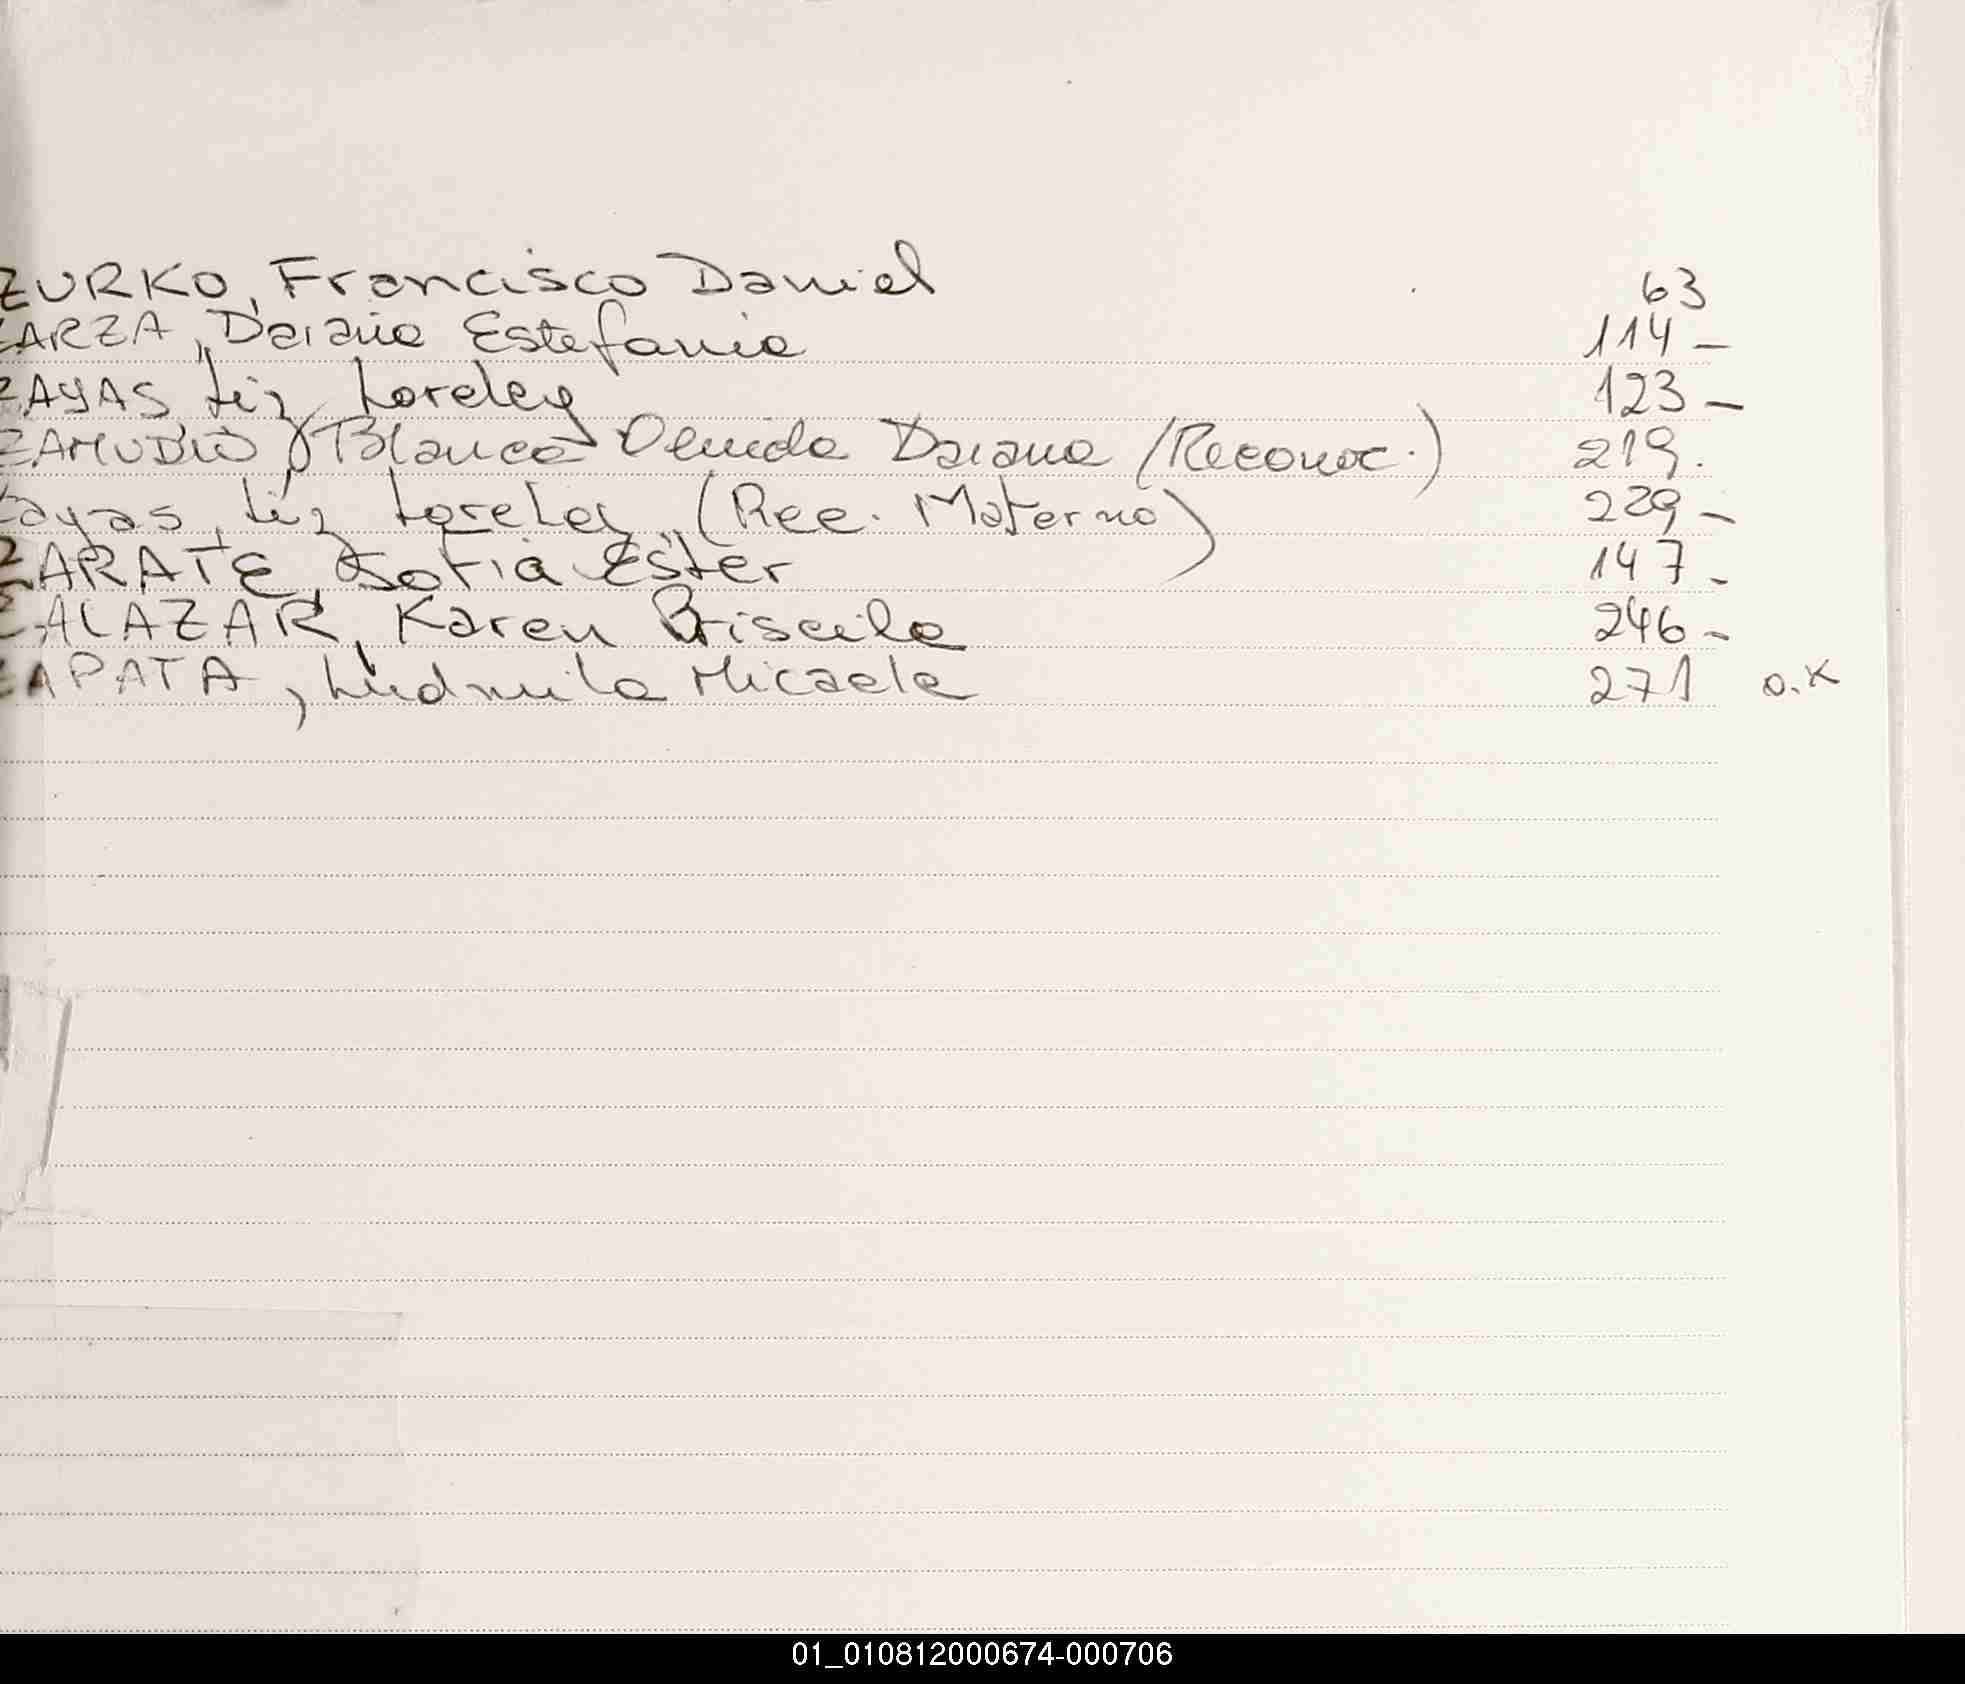 ZURKO, Francisco Daniel 63
ZARZA, Daiana Estefania 114 -
ZAYAS Liz Loreley 123 -
ZAMUDIO, Blanca Daiana (Reconoc.) 219.
Zayas, Liz Loreley (Rec. Materno) 229 -
ZARATE, Sofia Ester 147 -
ZALAZAR, Karen Briscila 246 -
ZAPATA, Ludmila Micaela 271 O.K
01_010812000674-000706